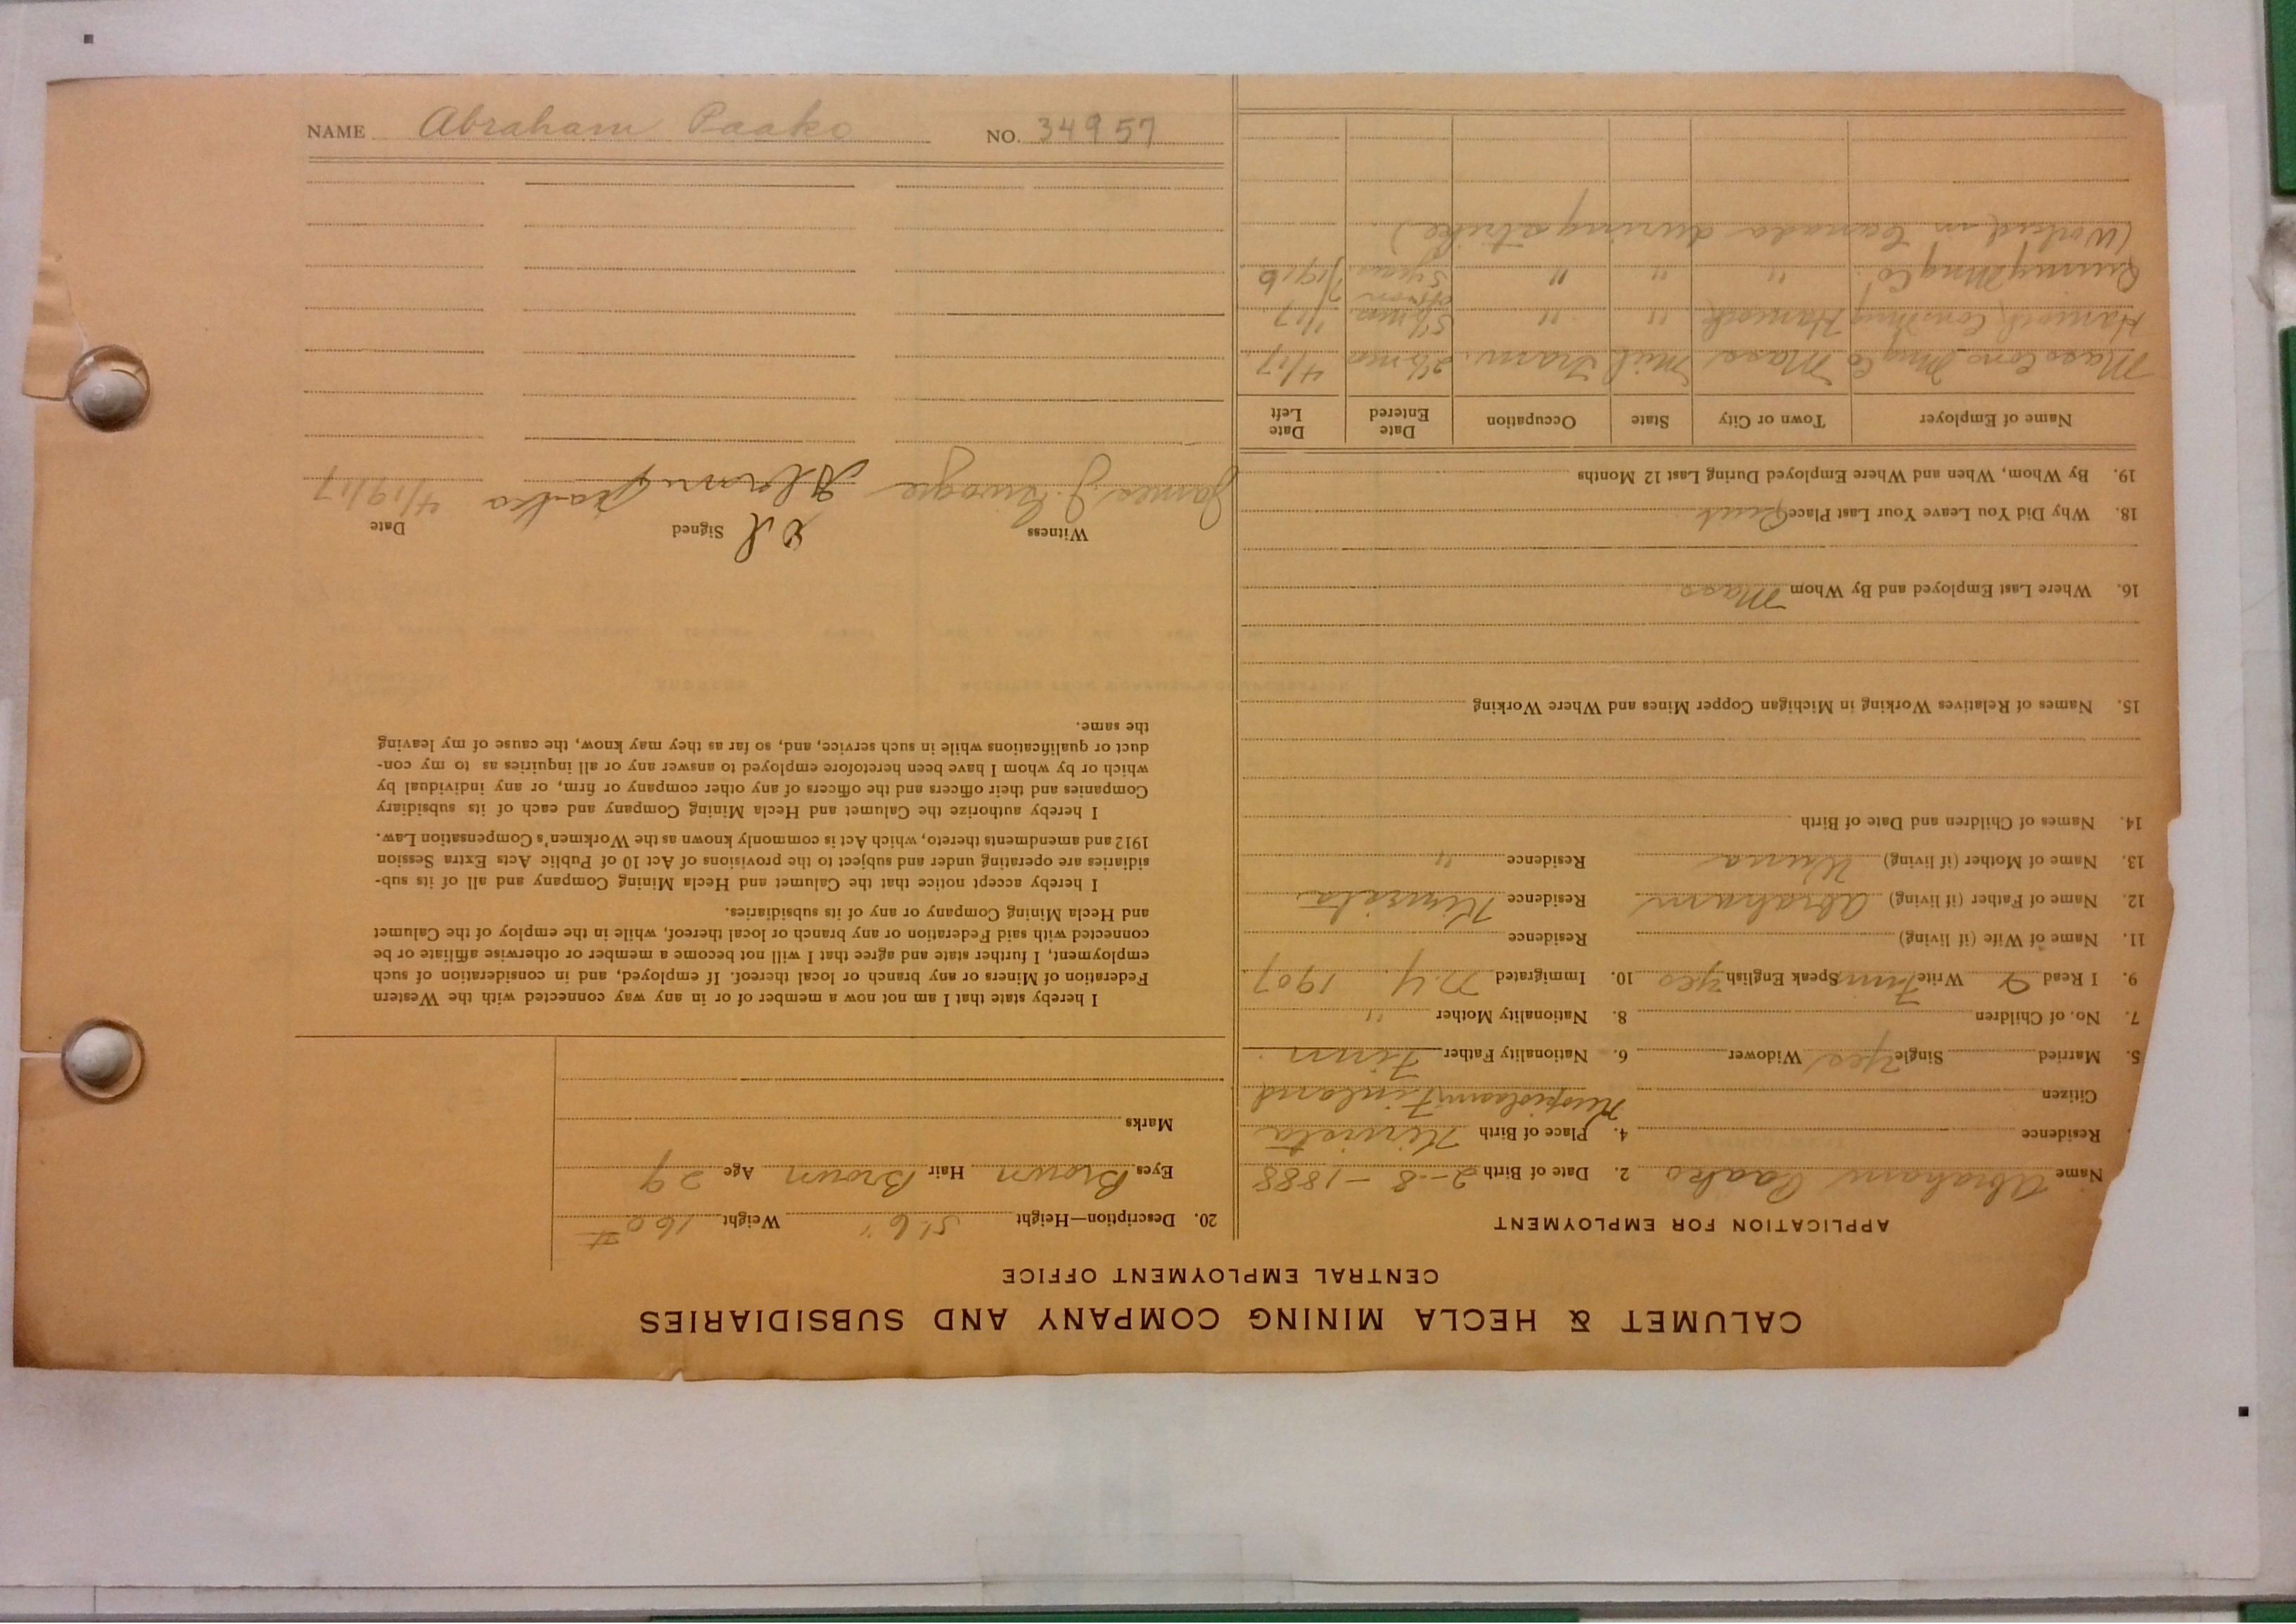 NAME Abraham Paako NO. 34957
CALUMET & HECLA MINING COMPANY AND SUBSIDIARIES
CENTRAL EMPLOYMENT OFFICE
APPLICATION FOR EMPLOYMENT
Name Abraham Paako 2. Date of Birth 2-8-1888
Residence 4. Place of Birth
Citizen Finland
5. Married Single Yes Widower 6. Nationality Father Finn
7. No. of Children 8. Nationality Mother "
9. I Read Write Finn Speak English Yes 10. Immigrated N.Y. 1907
11. Name of Wife (if living) Residence
12. Name of Father (if living) Abraham Residence
13. Name of Mother (if living) Residence "
14. Names of Children and Date of Birth
15. Names of Relatives Working in Michigan Copper Mines and Where Working
16. Where Last Employed and By Whom Mass
18. Why Did You Leave Your Last Place Quit
19. By Whom, When and Where Employed During Last 12 Months
Name of Employer Town or City State Occupation Date Entered Date Left
Mass Cons Mng Co Mass Mich Tram. 2½ mos 4/17
Hancock Cons Mng Hancock " " 1/17
Quincy Mng Co. " " " 1916
(Worked in Canada during strike)
20. Description—Height 5' 6" Weight 160 #
Eyes Brown Hair Brown Age 29
Marks
I hereby state that I am not now a member of or in any way connected with the Western
Federation of Miners or any branch or local thereof. If employed, and in consideration of such
employment, I further state and agree that I will not become a member or otherwise affiliate or be
connected with said Federation or any branch or local thereof, while in the employ of the Calumet
and Hecla Mining Company or any of its subsidiaries.
I hereby accept notice that the Calumet and Hecla Mining Company and all of its sub-
sidiaries are operating under and subject to the provisions of Act 10 of Public Acts Extra Session
1912 and amendments thereto, which Act is commonly known as the Workmen's Compensation Law.
I hereby authorize the Calumet and Hecla Mining Company and each of its subsidiary
Companies and their officers and the officers of any other company or firm, or any individual by
which or by whom I have been heretofore employed to answer any or all inquiries as to my con-
duct or qualifications while in such service, and, so far as they may know, the cause of my leaving
the same.
Witness Signed Date
James J. Paako 4/19/17